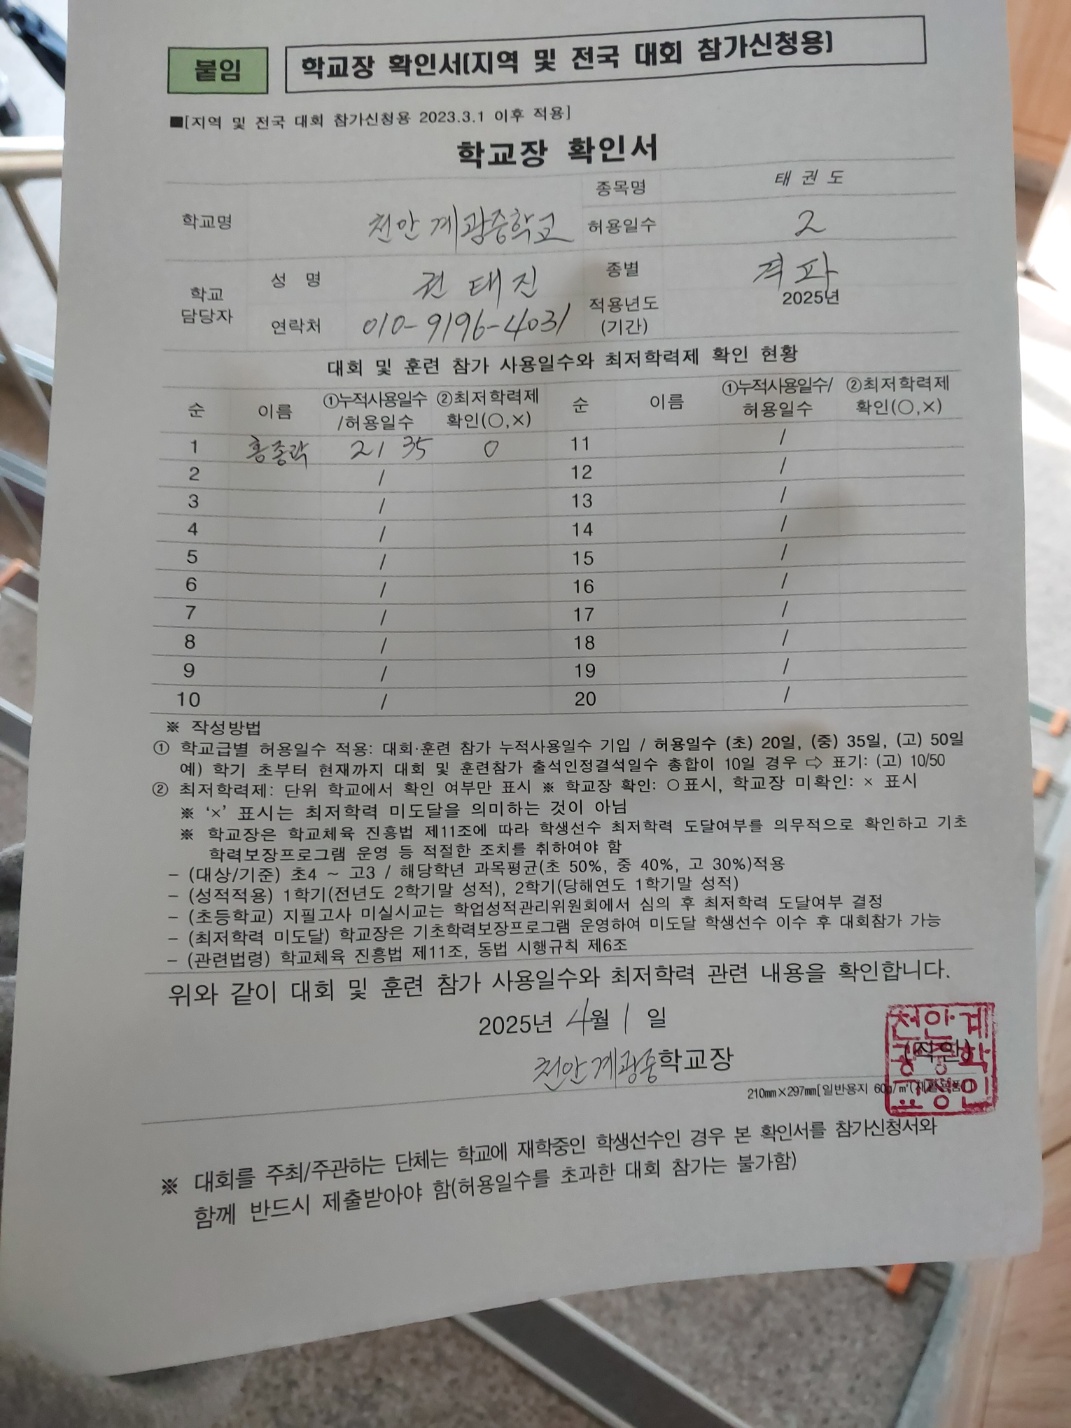 붙임 학교장 확인서(지역 및 전국 대회 참가신청용)
■[지역 및 전국 대회 참가신청용 2023.3.1 이후 적용]
학교장 확인서
학교명 천안계광중학교 종목명 태권도
허용일수 2
학교 담당자 성 명 권태진 종별 격파
연락처 010-9196-4031 적용년도 (기간) 2025년
대회 및 훈련 참가 사용일수와 최저학력제 확인 현황
순 이름 ①누적사용일수/허용일수 ②최저학력제 확인(○,×) 순 이름 ①누적사용일수/허용일수 ②최저학력제 확인(○,×)
1 홍종락 2/ 35 0 11 /
2 / 12 /
3 / 13 /
4 / 14 /
5 / 15 /
6 / 16 /
7 / 17 /
8 / 18 /
9 / 19 /
10 / 20 /
※ 작성방법
① 학교급별 허용일수 적용: 대회·훈련 참가 누적사용일수 기입 / 허용일수 (초) 20일, (중) 35일, (고) 50일
예) 학기 초부터 현재까지 대회 및 훈련참가 출석인정결석일수 총합이 10일 경우 ⇨ 표기: (고) 10/50
② 최저학력제: 단위 학교에서 확인 여부만 표시 ※ 학교장 확인: ○표시, 학교장 미확인: × 표시
※ ‘×’ 표시는 최저학력 미도달을 의미하는 것이 아님
※ 학교장은 학교체육 진흥법 제11조에 따라 학생선수 최저학력 도달여부를 의무적으로 확인하고 기초
학력보장프로그램 운영 등 적절한 조치를 취하여야 함
- (대상/기준) 초4 ~ 고3 / 해당학년 과목평균(초 50%, 중 40%, 고 30%)적용
- (성적적용) 1학기(전년도 2학기말 성적), 2학기(당해연도 1학기말 성적)
- (초등학교) 지필고사 미실시교는 학업성적관리위원회에서 심의 후 최저학력 도달여부 결정
- (최저학력 미도달) 학교장은 기초학력보장프로그램 운영하여 미도달 학생선수 이수 후 대회참가 가능
- (관련법령) 학교체육 진흥법 제11조, 동법 시행규칙 제6조
위와 같이 대회 및 훈련 참가 사용일수와 최저학력 관련 내용을 확인합니다.
2025년 4월 1 일
천안계광중학교장 (직인)
천안계
광중학
교장인
210㎜×297㎜[일반용지 60g/㎡
※ 대회를 주최/주관하는 단체는 학교에 재학중인 학생선수인 경우 본 확인서를 참가신청서와
함께 반드시 제출받아야 함(허용일수를 초과한 대회 참가는 불가함)